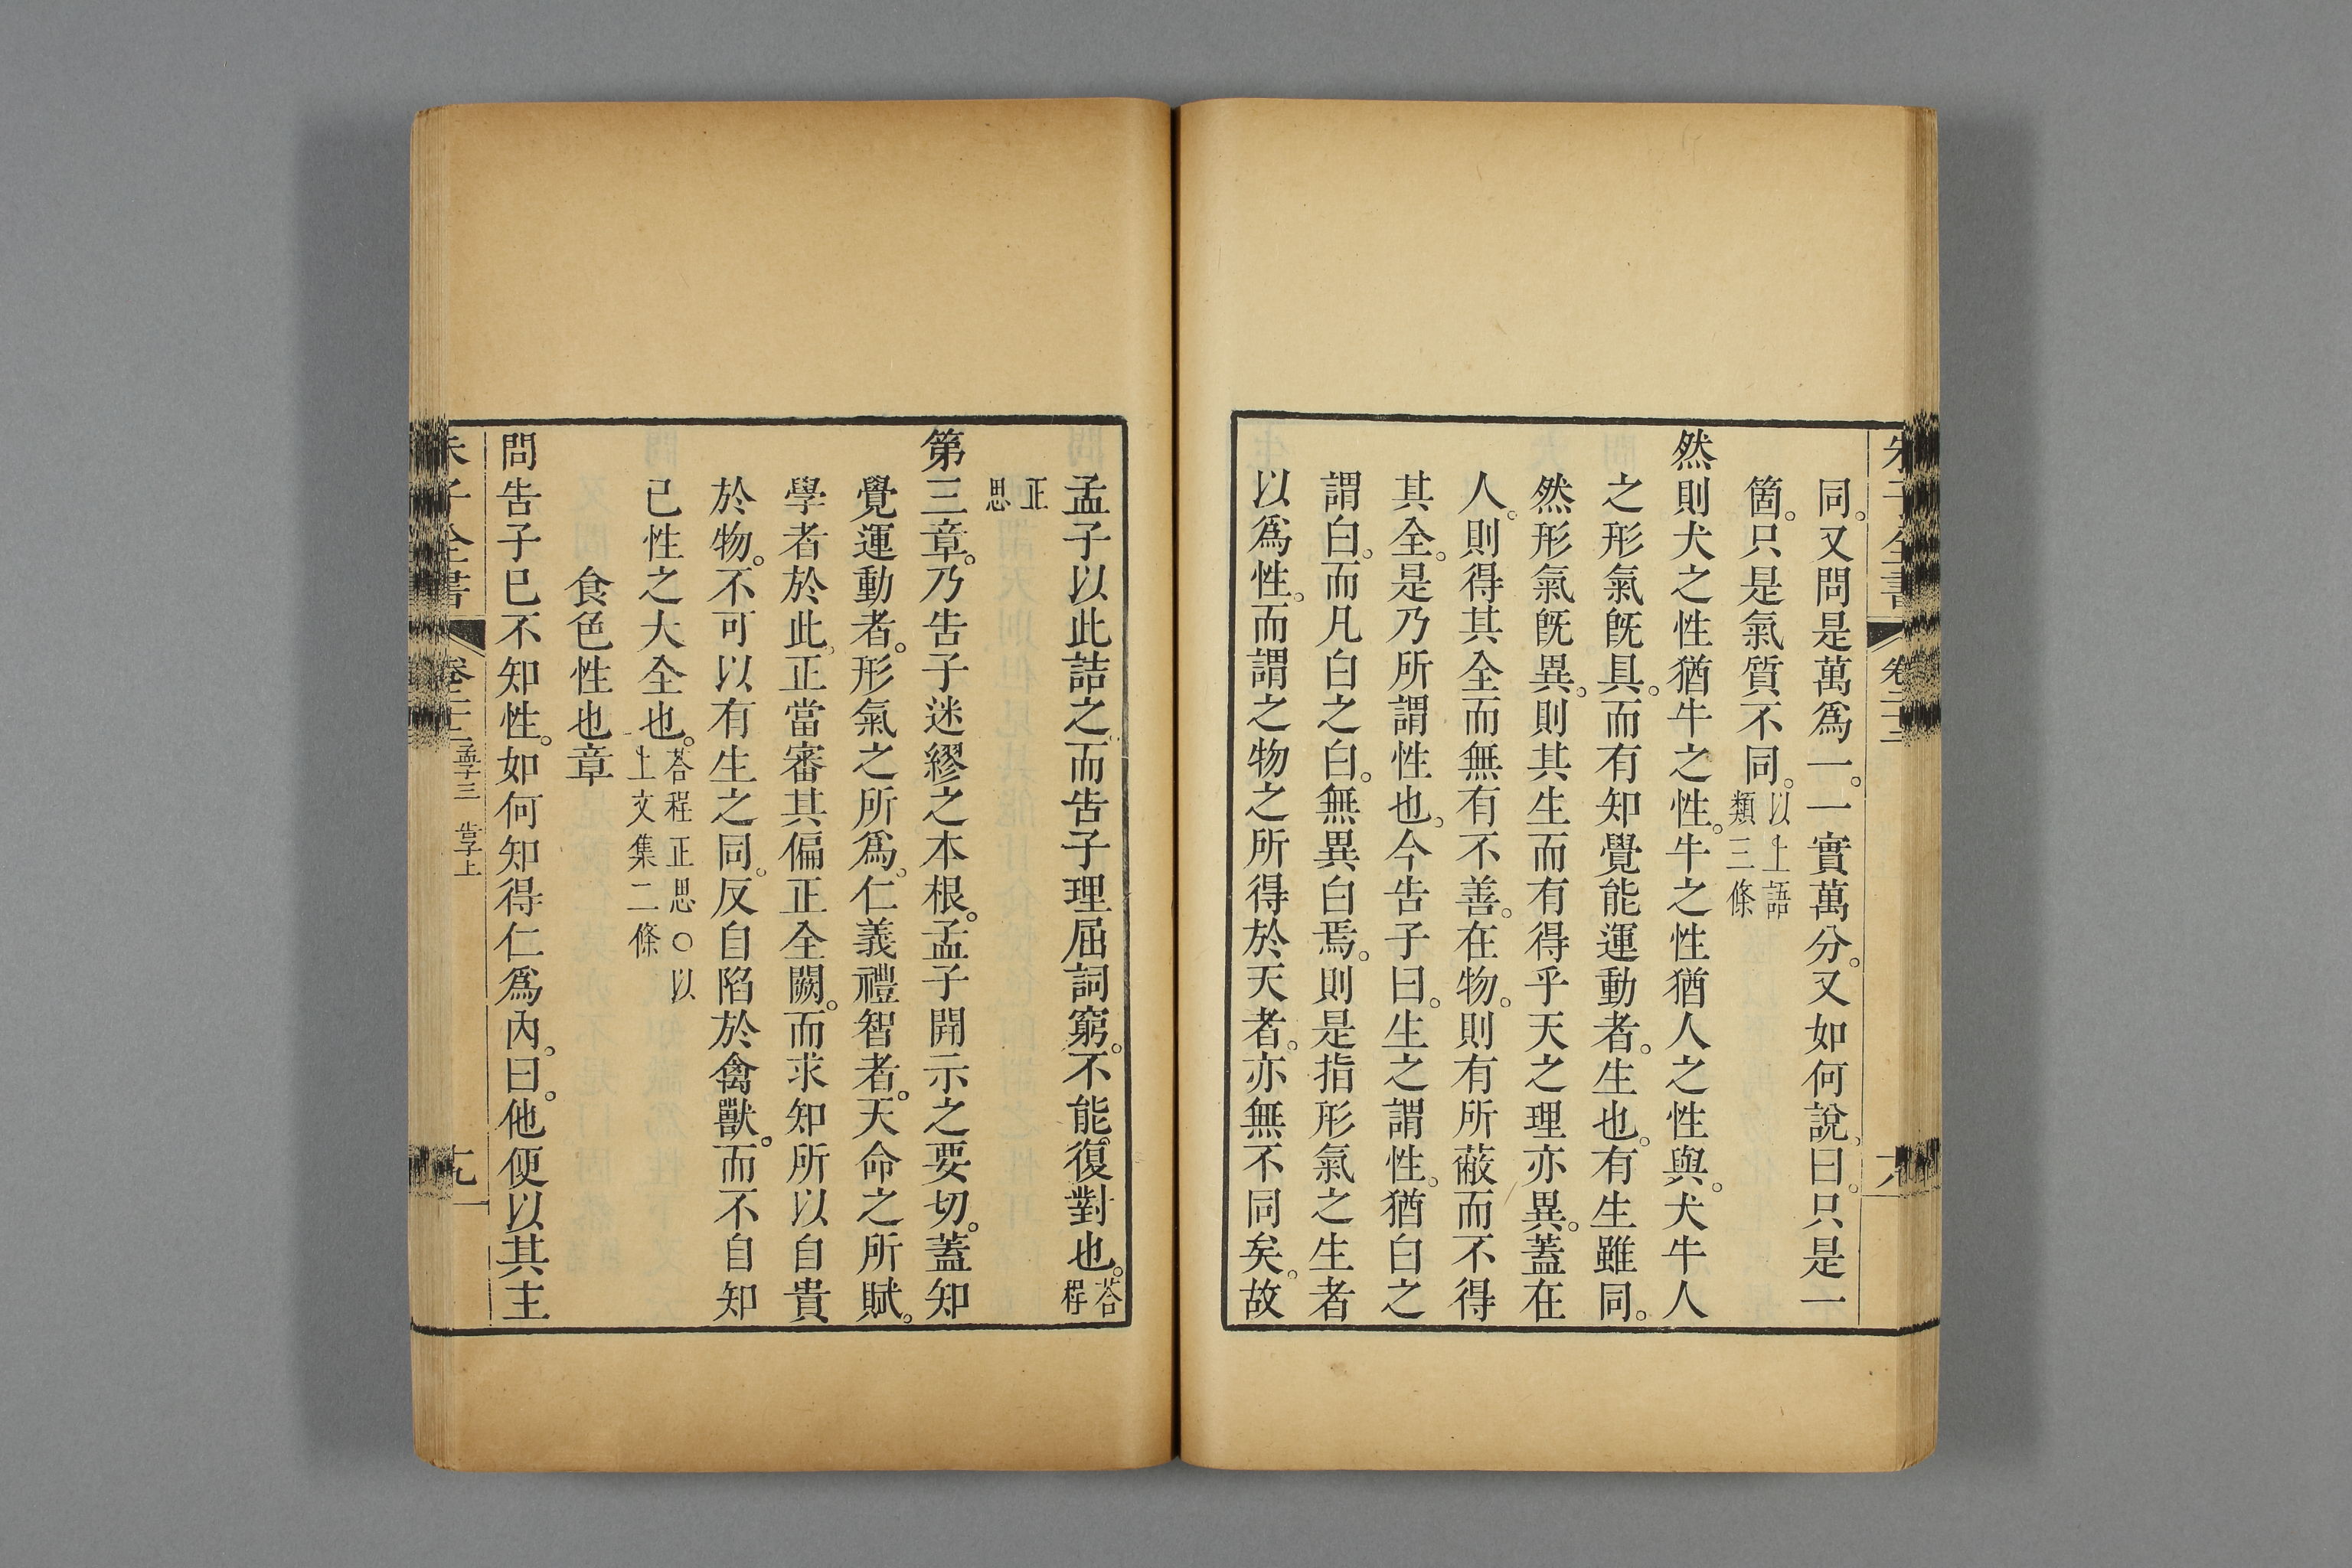 朱子全書 卷二十二
同。又問是萬爲一。一實萬分。又如何說。曰。只是一
箇。只是氣質不同。以上語類三條
然則犬之性猶牛之性。牛之性猶人之性與。犬牛人
之形氣旣具。而有知覺能運動者。生也。有生雖同。
然形氣旣異。則其生而有得乎天之理亦異。蓋在
人。則得其全而無有不善。在物。則有所蔽而不得
其全。是乃所謂性也。今告子曰。生之謂性。猶白之
謂白。而凡白之白。無異白焉。則是指形氣之生者
以爲性。而謂之物之所得於天者。亦無不同矣。故
孟子以此詰之。而告子理屈詞窮。不能復對也。答程
正思
第三章。乃告子迷繆之本根。孟子開示之要切。蓋知
覺運動者。形氣之所爲。仁義禮智者。天命之所賦。
學者於此。正當審其偏正全闕。而求知所以自貴
於物。不可以有生之同。反自陷於禽獸。而不自知
己性之大全也。答程正思○以上文集二條
食色性也章
問告子已不知性。如何知得仁爲內。曰。他便以其主
朱子全書 卷二十二 孟子三 告子上 十九